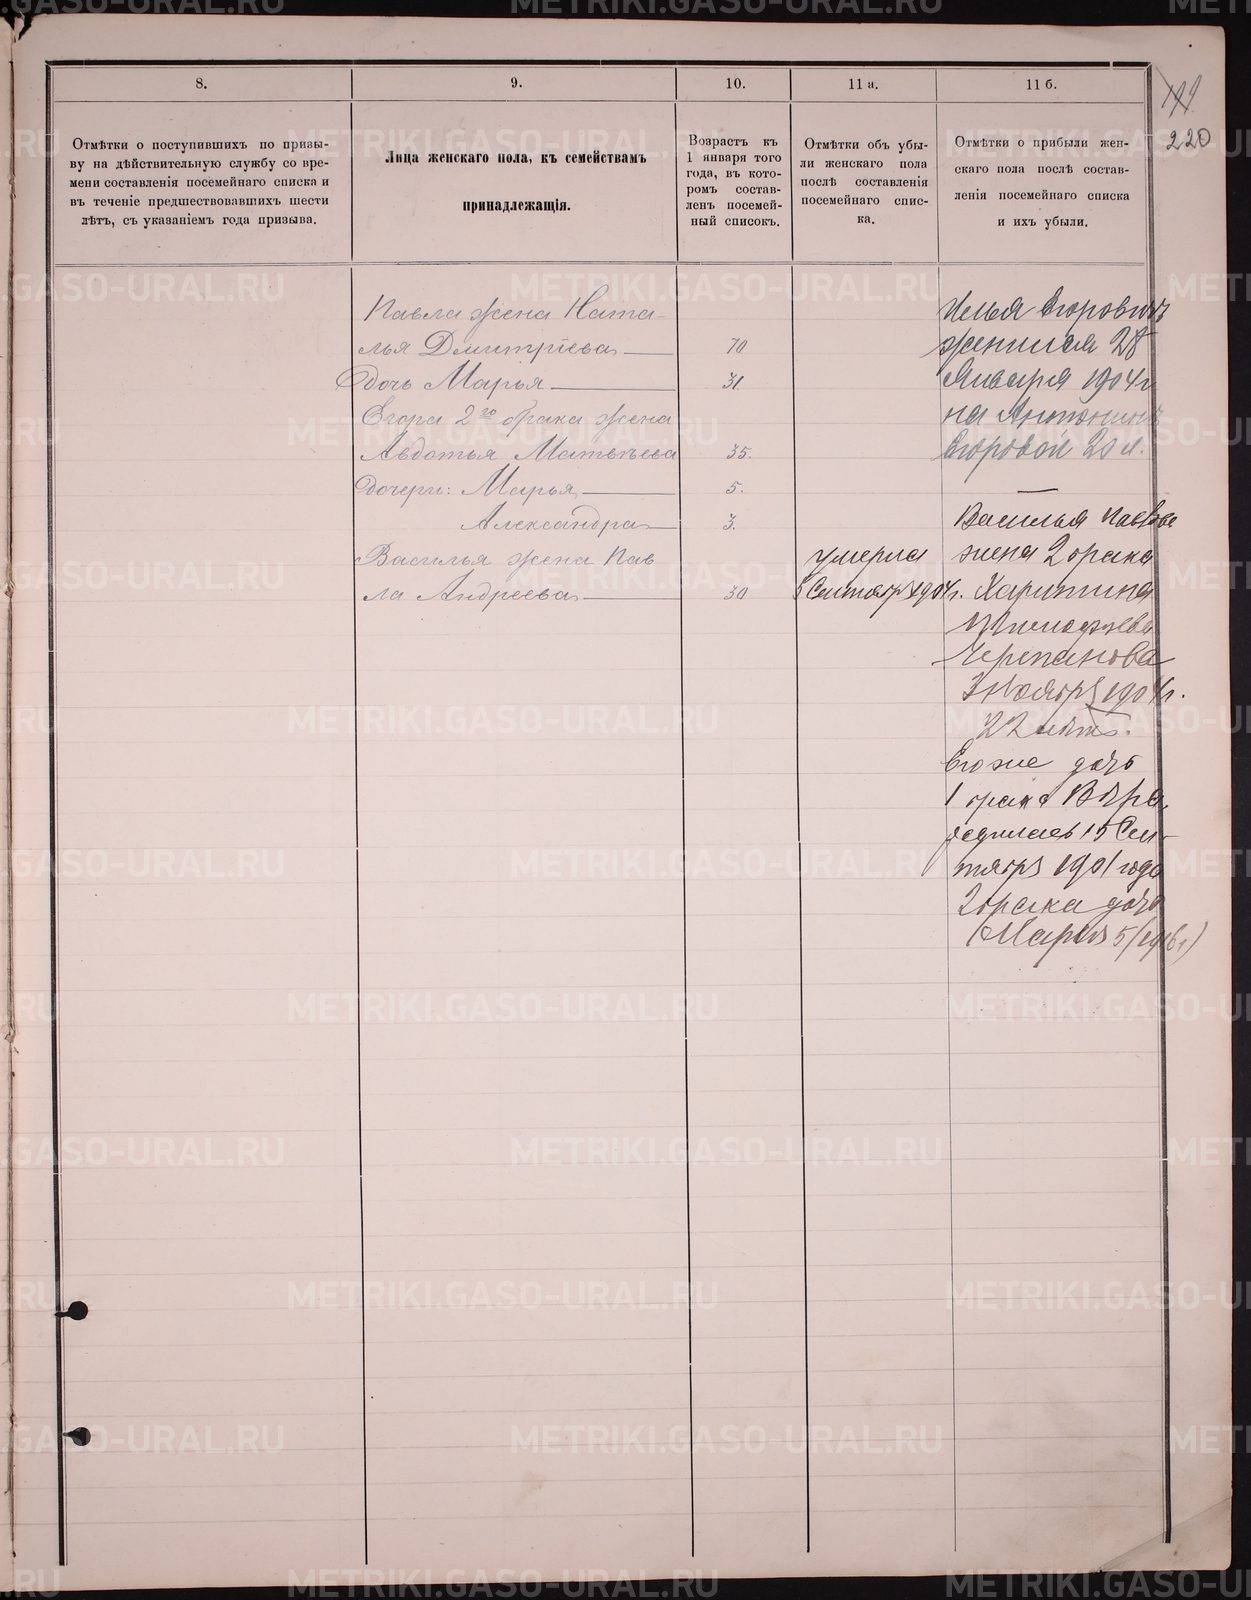 199
220
8.
9.
10.
11 а.
11 б.
Отмѣтки о поступившихъ по призы-
ву на дѣйствительную службу со вре-
мени составленія посемейнаго списка и
въ теченіе предшествовавшихъ шести
лѣтъ, съ указаніемъ года призыва.
Лица женскаго пола, къ семействамъ
принадлежащія.
Возрастъ къ
1 января того
года, въ кото-
ромъ состав-
ленъ посемей-
ный списокъ.
Отмѣтки объ убы-
ли женскаго пола
послѣ составленія
посемейнаго спис-
ка.
Отмѣтки о прибыли жен-
скаго пола послѣ состав-
ленія посемейнаго списка
и ихъ убыли.
Павла жена Ната-
лья Дмитріева 70
Дочь Марья 31
Егора 2го брака жена
Авдотья Матвѣева 35.
Дочери: Марья 5.
Александра 3.
Василья жена Пав
ла Андреева 30
умерла
5 Сентября 1904 г.
Илья Егоровичъ
женился 28
Января 1904 г
на Антонинѣ
Егоровой 20 л.
Василья Павлова
жена 2 брака
Харитина
Черепанова
Ноября 1904 г.
22 лѣтъ.
Его же дочь
1 брака Вѣра,
родилась 15 Сен-
тября 1901 года
2 брака дочь
Марія 5
METRIKI.GASO-URAL.RU